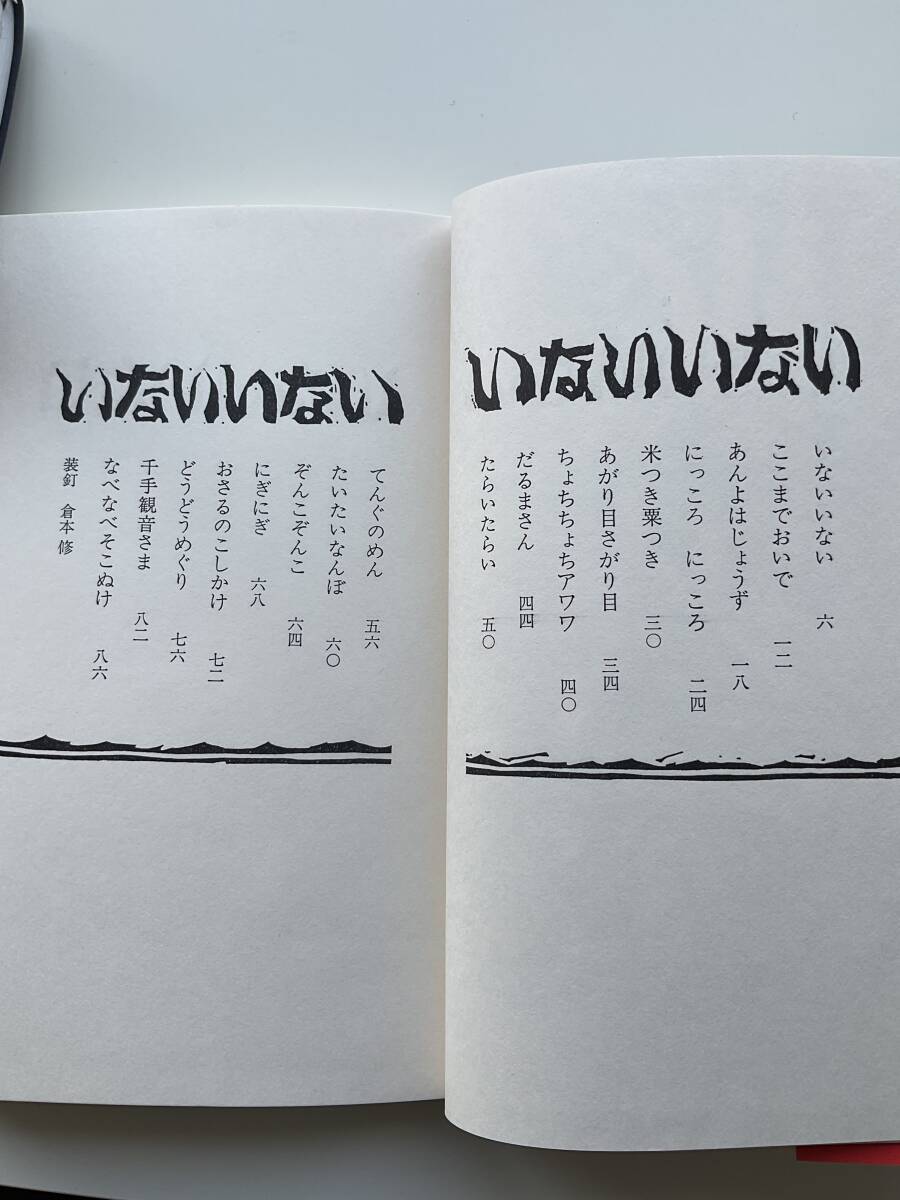 いないいない
いないいない 六
ここまでおいで 一二
あんよはじょうず 一八
にっころ にっころ 二四
米つき粟つき 三〇
あがり目さがり目 三四
ちょちちょちアワワ 四〇
だるまさん 四四
たらいたらい 五〇
いないいない
てんぐのめん 五六
たいたいなんぼ 六〇
ぞんこぞんこ 六四
にぎにぎ 六八
おさるのこしかけ 七二
どうどうめぐり 七六
千手観音さま 八二
なべなべそこぬけ 八六
装釘 倉本修